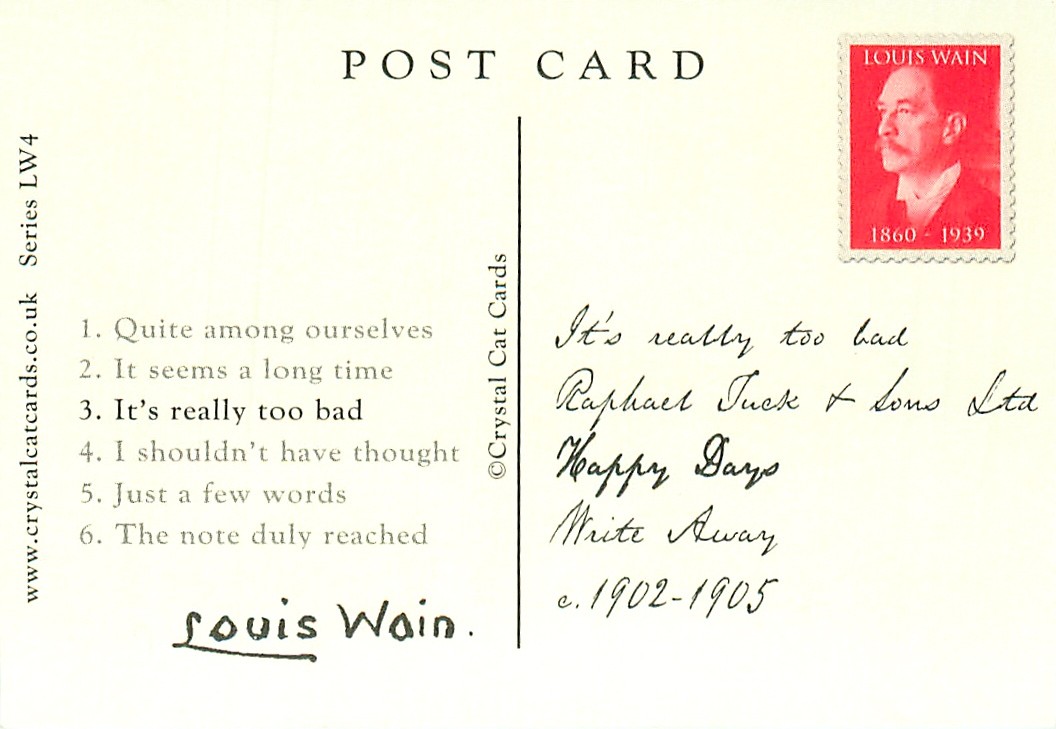 POST CARD
LOUIS WAIN
1860 - 1939
www.crystalcatcards.co.uk Series LW4
1. Quite among ourselves
2. It seems a long time
3. It's really too bad
4. I shouldn't have thought
5. Just a few words
6. The note duly reached
Louis Wain.
©Crystal Cat Cards
It's really too bad
Raphael Tuck & Sons Ltd
Happy Days
Write Away
c. 1902-1905